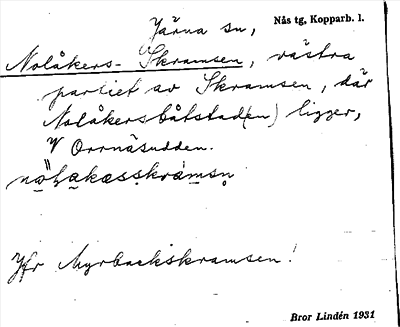 Järna sn, Nås tg, Kopparb. l.
Nolåkers-Skramsen, västra
partiet av Skramsen, där
Nolåkersbåtstad(en) ligger,
V Orrnäsudden.
Jfr Myrbackskramsen!
Bror Lindén 1931